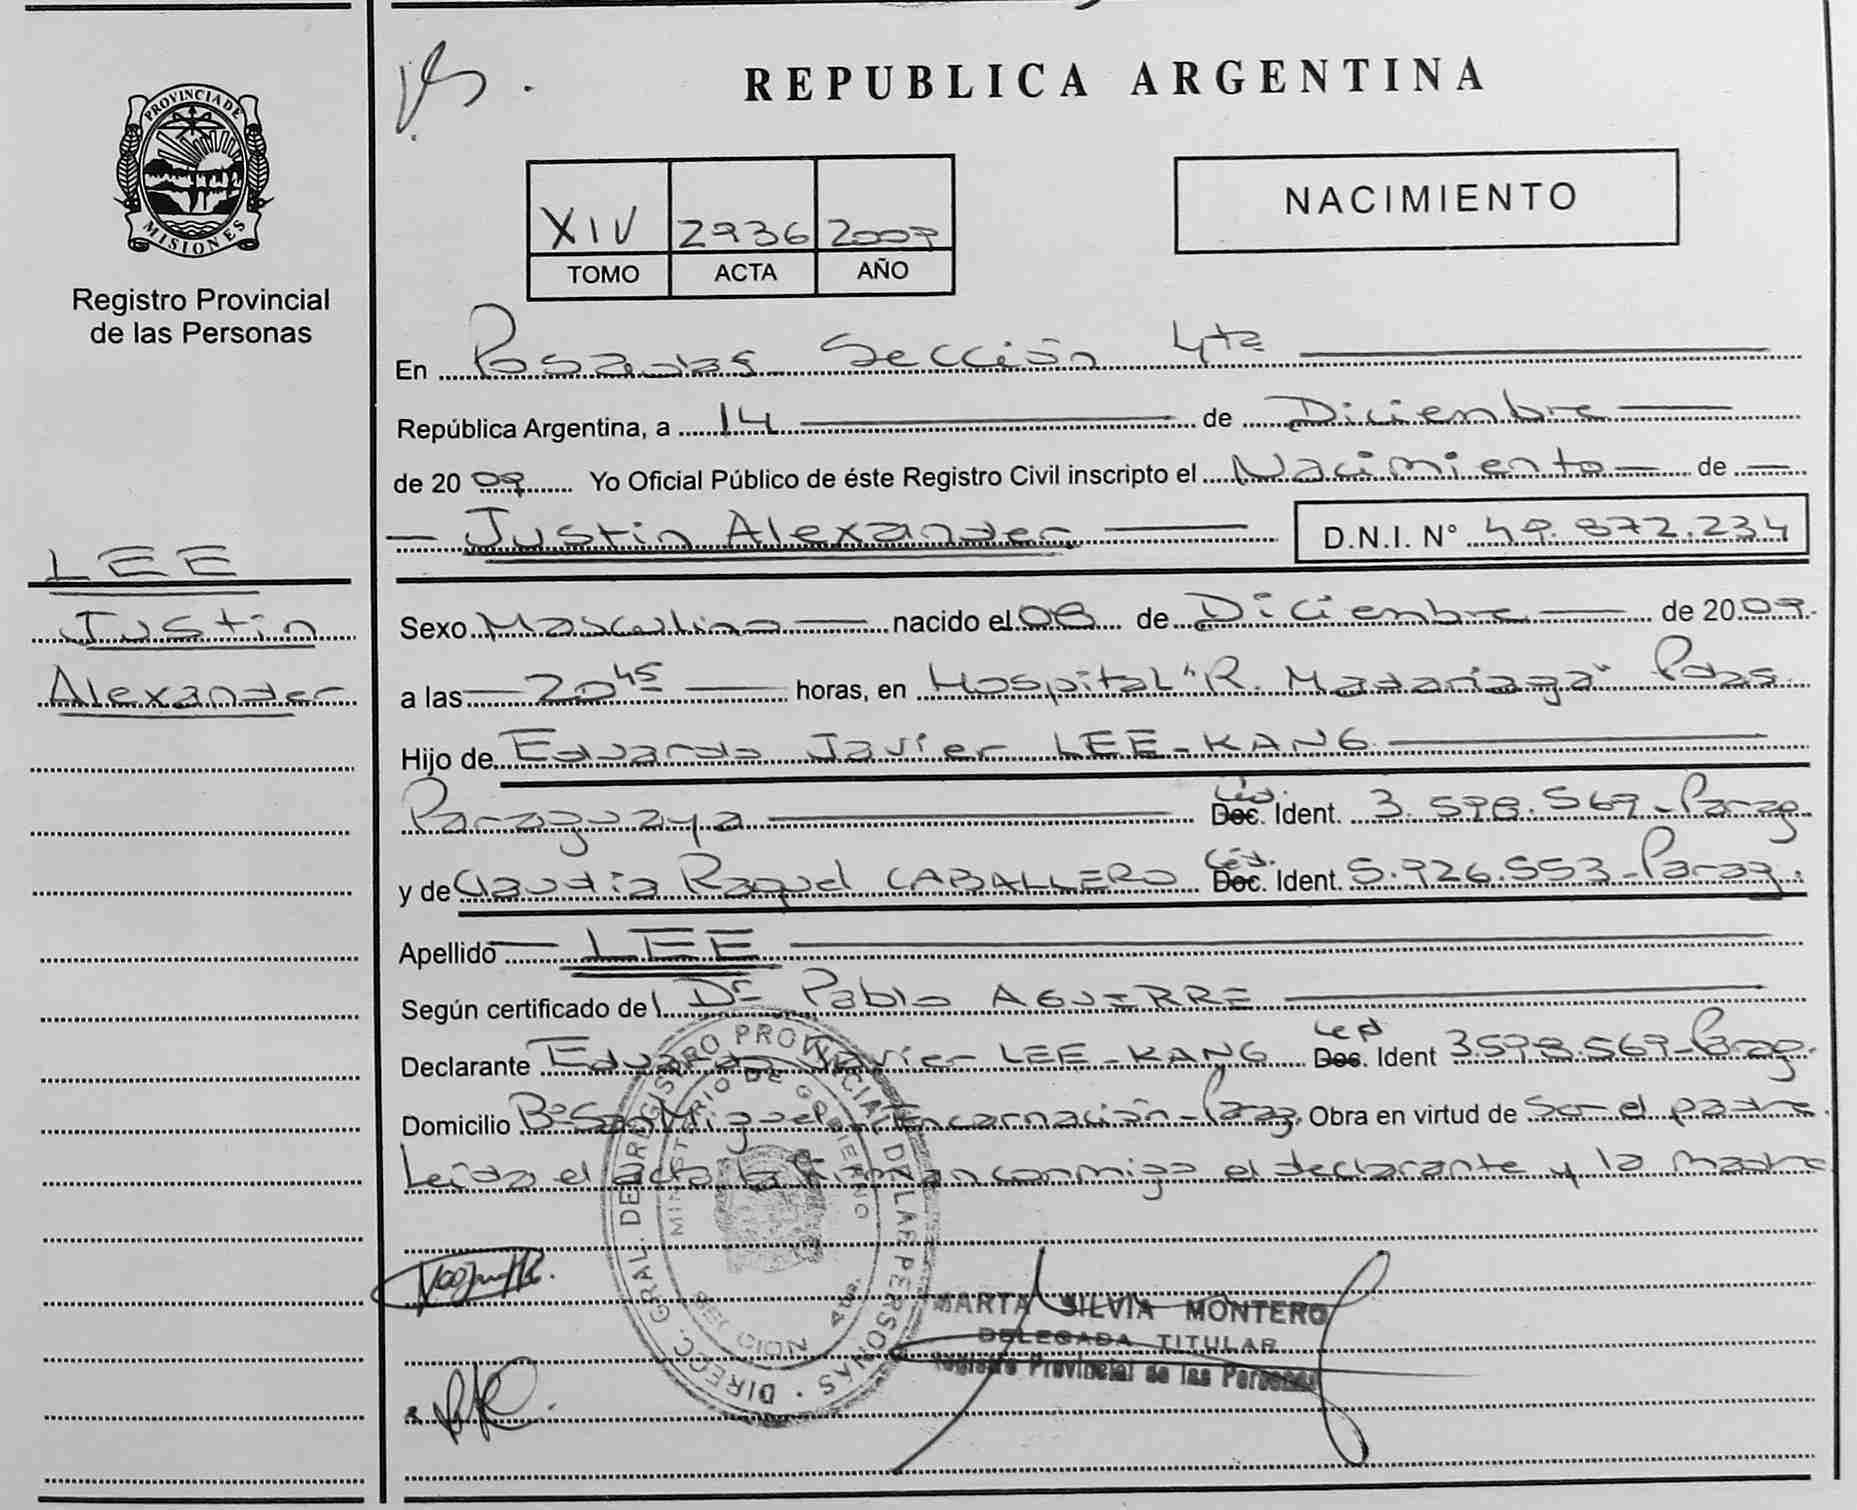 REPUBLICA ARGENTINA
PROVINCIA DE
MISIONES
Registro Provincial
de las Personas
LEE
Justin
Alexander
XIV 2936 2009
TOMO ACTA AÑO
NACIMIENTO
En Posadas Sección 4ta
República Argentina, a 14 de Diciembre
de 2009 Yo Oficial Público de éste Registro Civil inscripto el Nacimiento de
Justin Alexander D.N.I. N° 49.872.234
Sexo Masculino nacido el 08 de Diciembre de 2009.
a las 20 45 horas, en Hospital "R. Madariaga" Pdas.
Hijo de Eduardo Javier LEE-KANG
Paraguaya Céd. Doc. Ident. 3.598.569-Parag
y de Claudia Raquel CABALLERO Céd. Doc. Ident. 5.926.553-Parag.
Apellido LEE
Según certificado del Dr Pablo AGUIRRE
Declarante Eduardo Javier LEE-KANG Ced Doc. Ident 3.598.569-Parag.
Domicilio Bº San Miguel Encarnación-Parag. Obra en virtud de ser el padre.
Leída el acta la firman conmigo el declarante y la madre
DIRECC. GRAL. DE REGISTRO PROVINCIAL DE LAS PERSONAS
MINISTERIO DE GOBIERNO
MARTA SILVIA MONTERO
DELEGADA TITULAR
Registro Provincial de las Personas